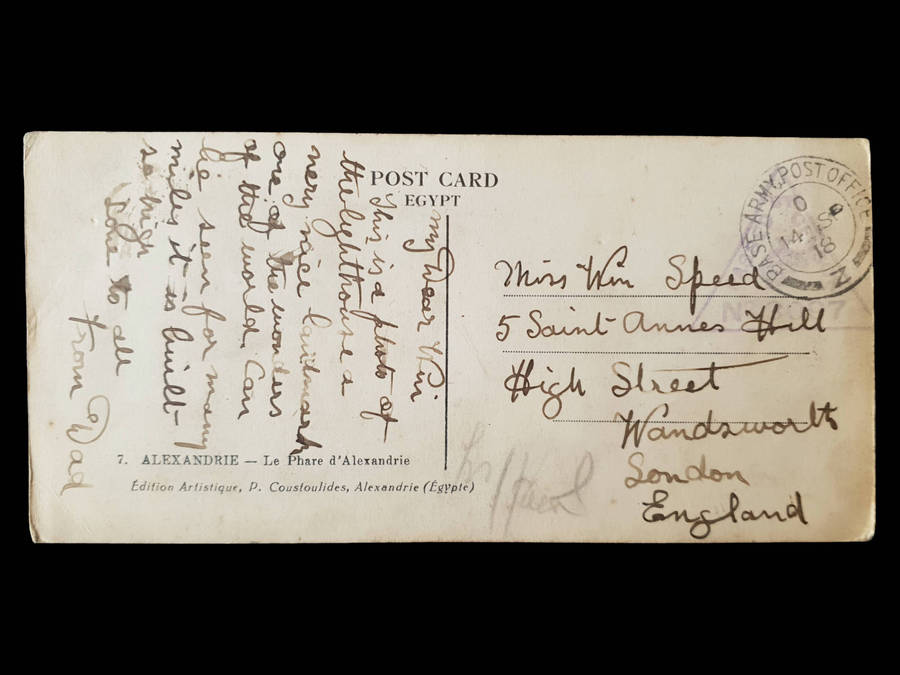 POST CARD
EGYPT
My Dear Win
This is a photo of
the lighthouse a
very nice landmark
one of the wonders
of the world. Can
be seen for many
miles it is built
so high
Love to all
From Dad
Miss Win Speed
5 Saint Annes Hill
High Street
Wandsworth
London
England
BASE ARMY POST OFFICE
Z
14
18
7. ALEXANDRIE — Le Phare d'Alexandrie
Édition Artistique, P. Coustoulides, Alexandrie (Égypte)